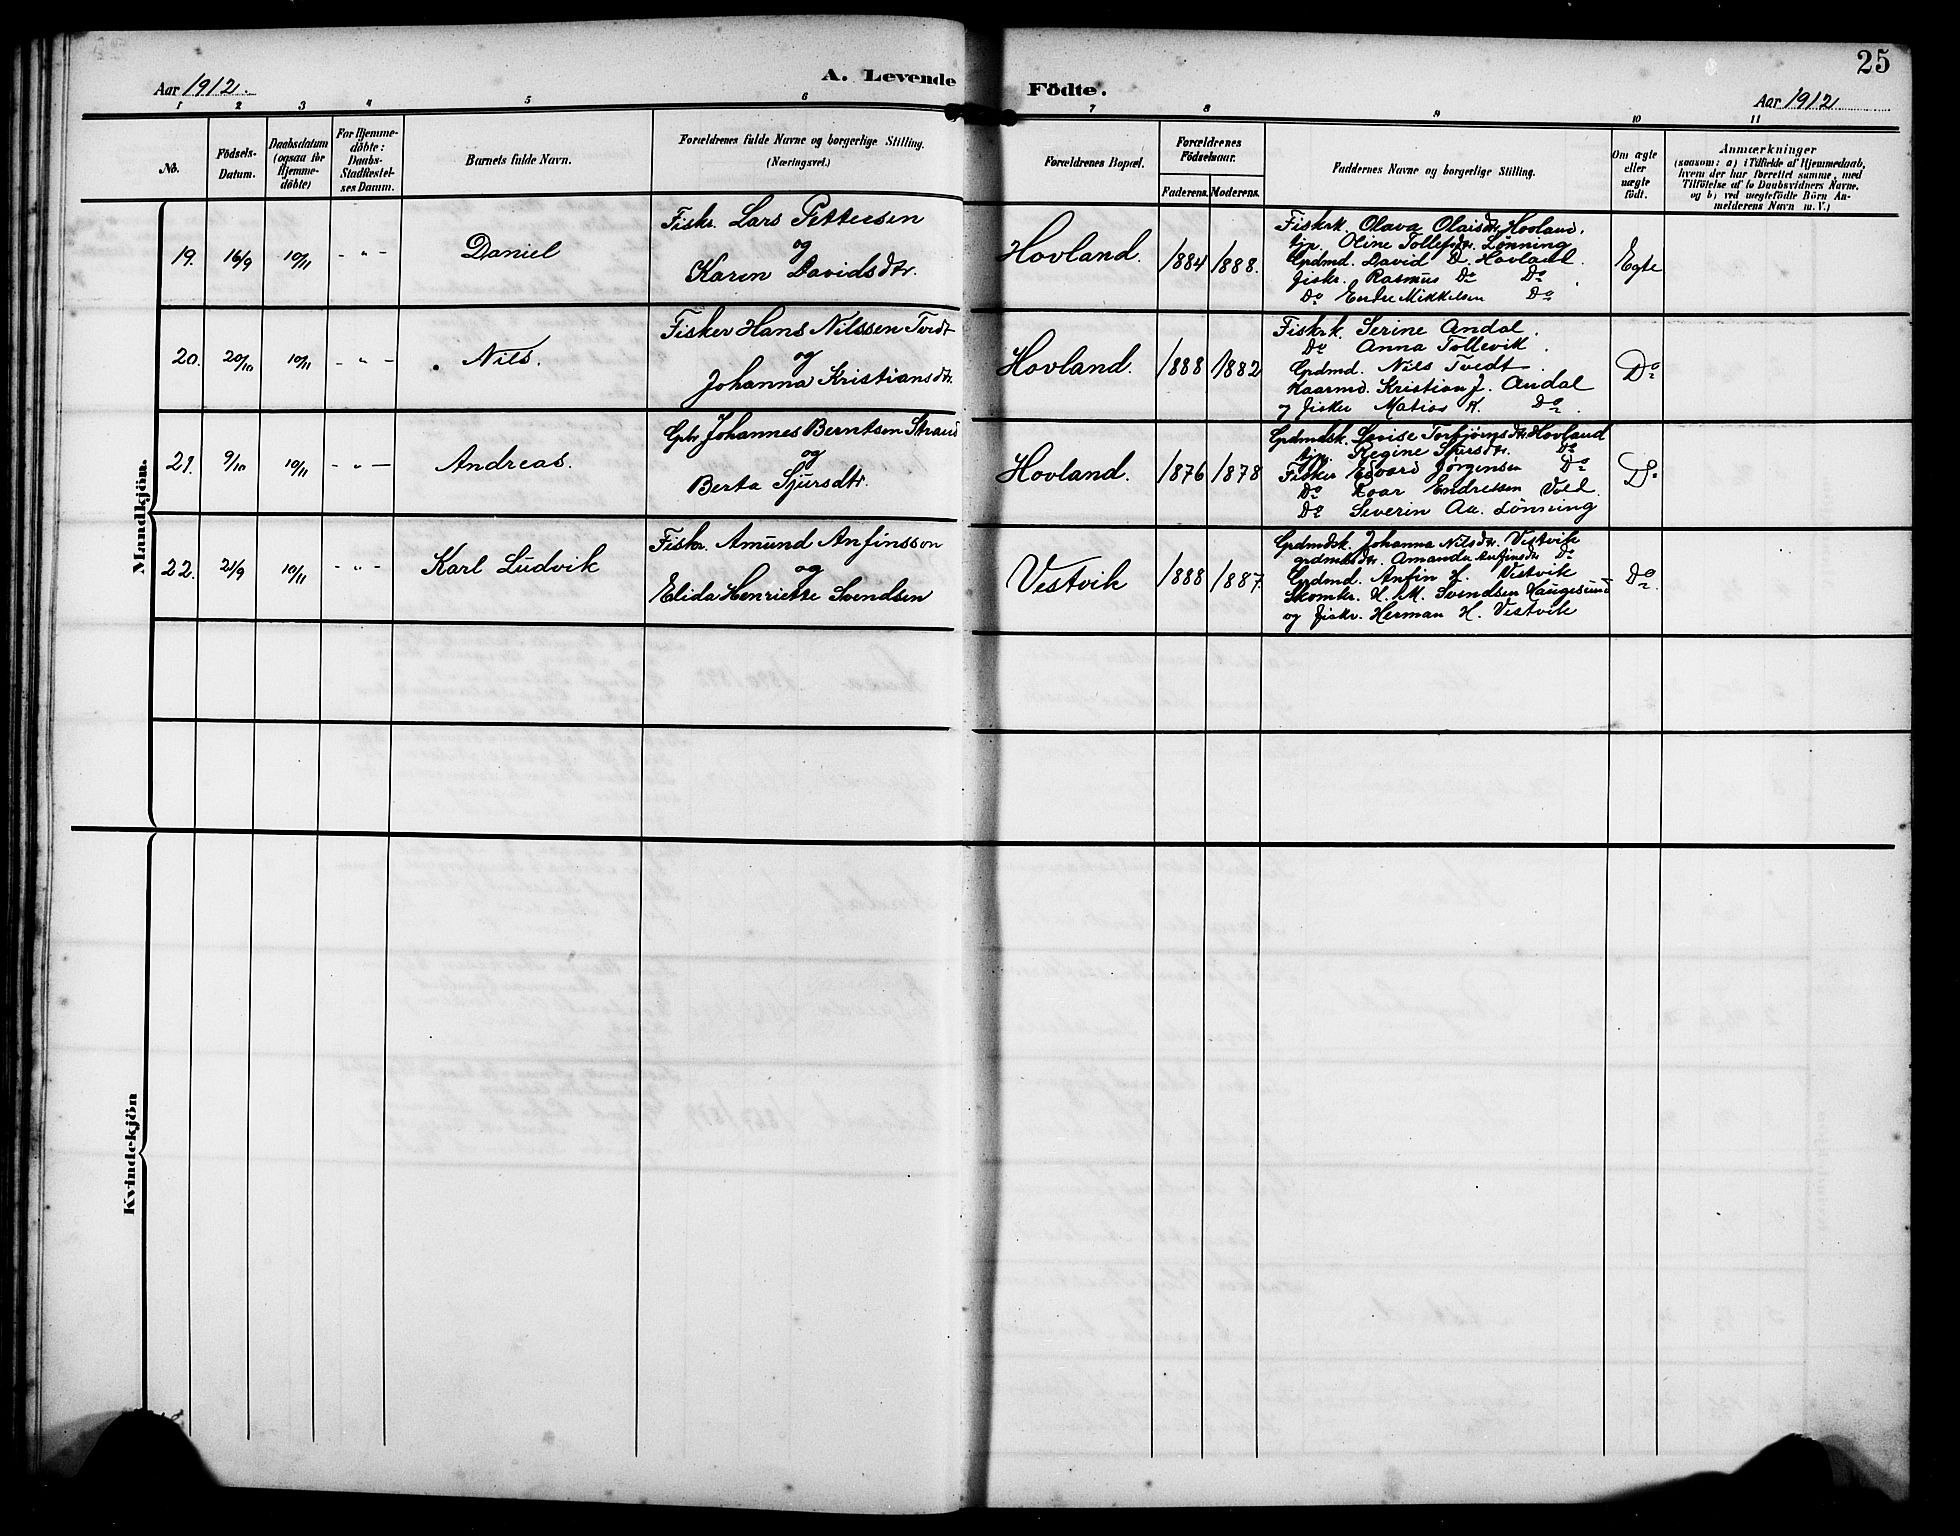 25
A. Levende Födte.
Aar 1912.
Aar 1912
1 2 3 4 5 6 7 8 9 10 11
No.
Födsels-Datum.
Daabsdatum (ogsaa for Hjemme-döbte)
For Hjemme-döbte: Daabs-Stadfæstel-ses Datum.
Barnets fulde Navn.
Forældrenes fulde Navne og borgerlige Stilling. (Næringsvei.)
Forældrenes Bopæl.
Forældrenes Födselsaar.
Faderens. Moderens.
Faddernes Navne og borgerlige Stilling.
Om ægte eller uægte födt.
Anmærkninger
(saasom: a) i Tilfælde af Hjemmedaab, hvem der har forrettet samme, med Tilföielse af to Daabsvidners Navne, og b) ved uægtefödte Börn An-melderens Navn m. V.)
Mandkjön.
19. 16/9 10/11 - " - Daniel
Fiskr. Lars Pettersen
og
Karen Davidsdtr.
Hovland. 1884 1888.
Fiskrk. Olava Olaisdtr Hovland.
tjp. Oline Tollefsdtr. Lønning
Grdmd. David D. Hovland.
fiskr. Rasmus Do Do
Do Endre Mikkelsen Do
Egte
20. 20/10 10/11 - " - Nils.
Fisker Hans Nilssen Tvedt
og
Johanna Kristiansdtr.
Hovland. 1888 1882
Fiskrk. Serine Andal.
Do Anna Tollevik.
Grdmd. Nils Tvedt.
Kaarmd. Kristian J. Andal
og fisker Matias K. Do.
Do
21. 9/10 10/11 - " - Andreas.
Gbr. Johannes Berntsen Strand
og
Berta Sjursdtr.
Hovland. 1876 1878
Grdmdsk. Lovise Torbjørnsdtr Hovland
tjp. Regine Sjursdtr. Do
Fisker Edvard Jørgensen Do
Do Roar Endresen Vold.
Do Severin Aa. Lønning
Do
22. 21/9 10/11 - " - Karl Ludvik
Fiskr. Amund Anfinsson
og
Elida Henriette Svendsen
Vestvik 1888 1887
Grdmdsk. Johanna Nilsdtr. Vestvik
grdmdsdtr. Amanda Anfinsdtr Do
Grdmd. Anfin H. Vestvik
Skomkr. H. M. Svendsen Haugesund
og fiskr. Herman H. Vestvik
Do.
Kvindekjön